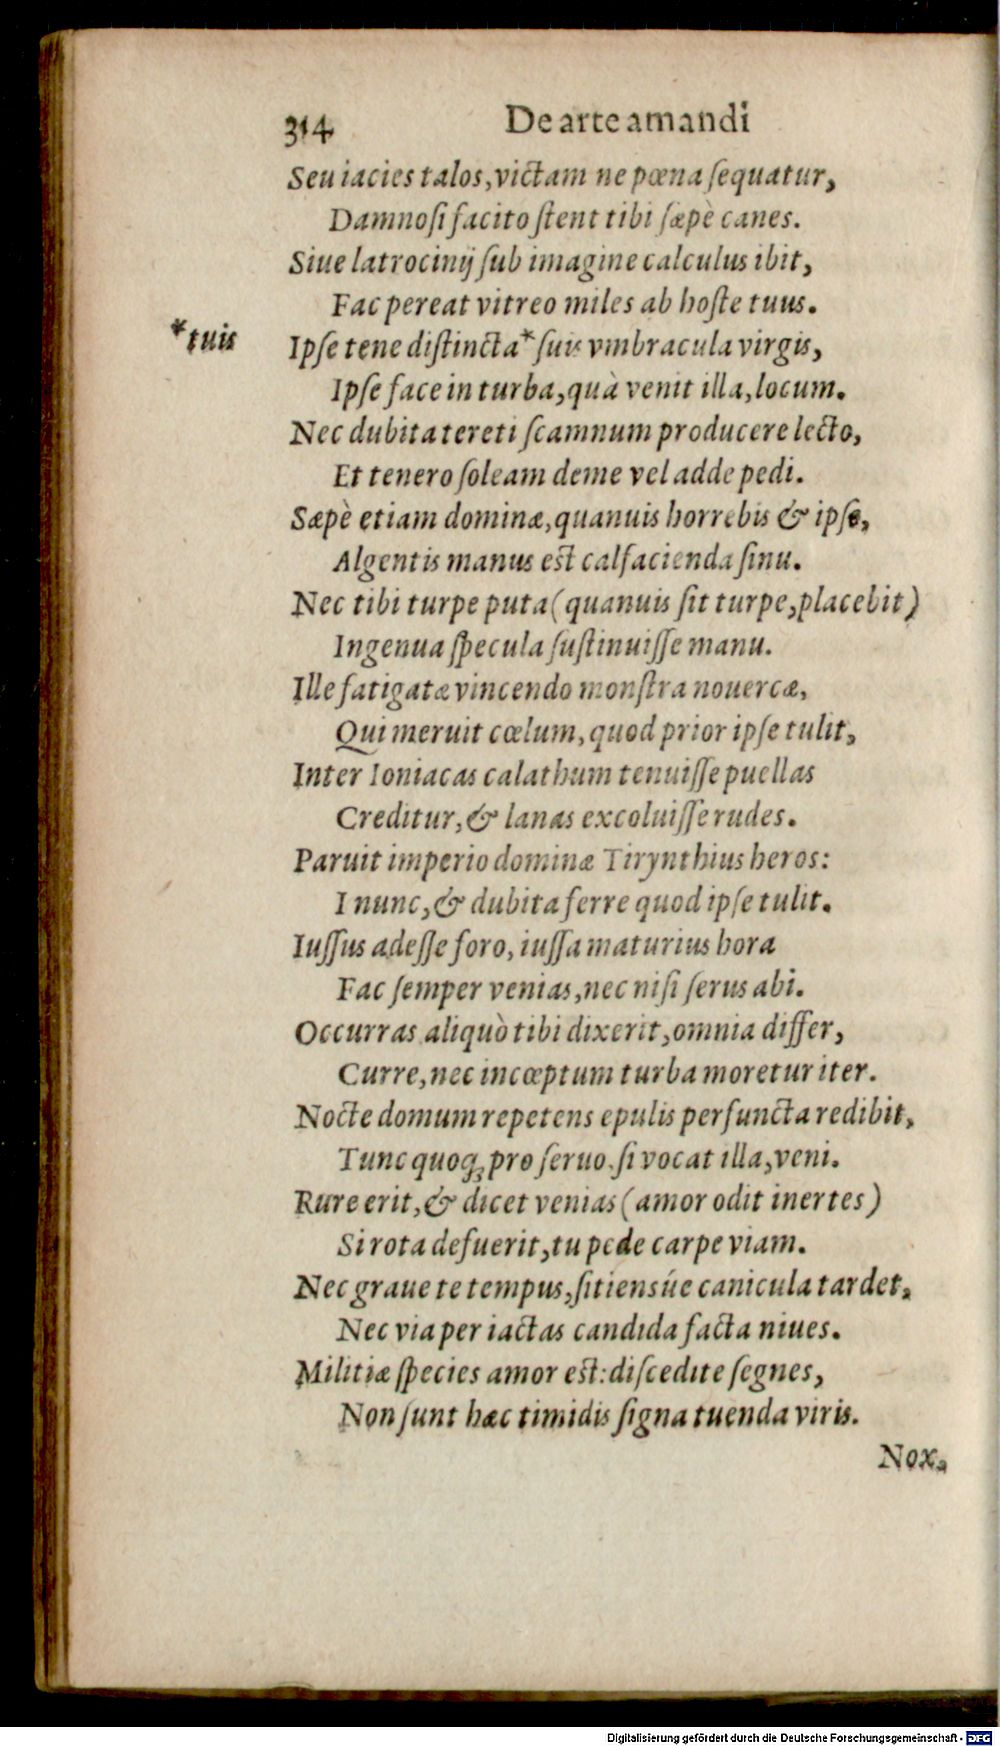 314 De arte amandi
Seu iacies talos, victam ne pœna ſequatur,
Damnoſi facito ſtent tibi ſæpè canes.
Siue latrocinij ſub imagine calculus ibit,
Fac pereat vitreo miles ab hoſte tuus.
*tuis
Ipſe tene diſtincta * ſuis vmbracula virgis,
Ipſe face in turba, quà venit illa, locum.
Nec dubita tereti ſcamnum producere lecto,
Et tenero ſoleam deme vel adde pedi.
Sæpè etiam dominæ, quanuis horrebis & ipſe,
Algentis manus est calfacienda ſinu.
Nec tibi turpe puta (quanuis ſit turpe, placebit)
Ingenua ſpecula ſuſtinuiſſe manu.
Ille fatigatæ vincendo monſtra nouercæ,
Qui meruit cœlum, quod prior ipſe tulit,
Inter Ioniacas calathum tenuiſſe puellas
Creditur, & lanas excoluiſſe rudes.
Paruit imperio dominæ Tirynthius heros:
I nunc, & dubita ferre quod ipſe tulit.
Iuſſus adeſſe foro, iuſſa maturius hora
Fac ſemper venias, nec niſi ſerus abi.
Occurras aliquò tibi dixerit, omnia differ,
Curre, nec incœptum turba moretur iter.
Nocte domum repetens epulis perfuncta redibit,
Tunc quoq; pro ſeruo. ſi vocat illa, veni.
Rure erit, & dicet venias (amor odit inertes)
Si rota defuerit, tu pede carpe viam.
Nec graue te tempus, ſitiensúe canicula tardet,
Nec via per iactas candida facta niues.
Militiæ ſpecies amor est: diſcedite ſegnes,
Non ſunt hæc timidis ſigna tuenda viris.
Nox.
Digitalisierung gefördert durch die Deutsche Forschungsgemeinschaft - DFG